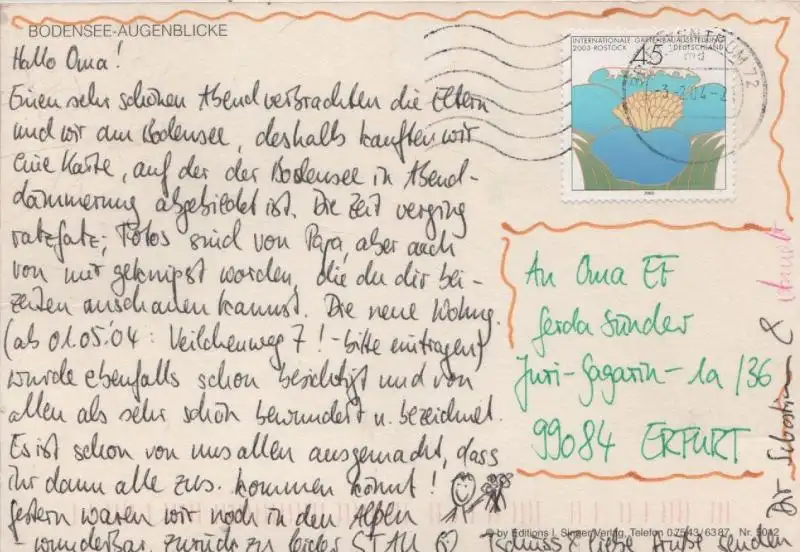 BODENSEE-AUGENBLICKE
Hallo Oma!
Einen sehr schönen Abend verbrachten die Eltern
und wir am Bodensee, deshalb kauften wir
eine Karte, auf der der Bodensee in Abend-
dämmerung abgebildet ist. Die Zeit verging
ratzfatz; Fotos sind von Papa, aber auch
von mir geknipst worden, die du dir bei-
zeiten anschauen kannst. Die neue Wohng.
(ab 01.05.'04: Veilchenweg 7! - bitte eintragen)
wurde ebenfalls schon besichtigt und von
allen als sehr schön bewundert u. bezeichnet.
Es ist schon von uns allen ausgemacht, dass
ihr dann alle zus. kommen könnt!
Gestern waren wir noch in den Alpen
- wunderbar, zurück zu leider STAU
Tschüss & liebe Grüße senden
Dir Sebastian &
INTERNATIONALE GARTENBAUAUSSTELLUNG
2003 ROSTOCK
DEUTSCHLAND
45
2003
72
An Oma EF
Gerda Sünder
Juri-Gagarin-1a/36
99084 ERFURT
© by Editions L. Singer Verlag, Telefon 07543/6387, Nr. 5012